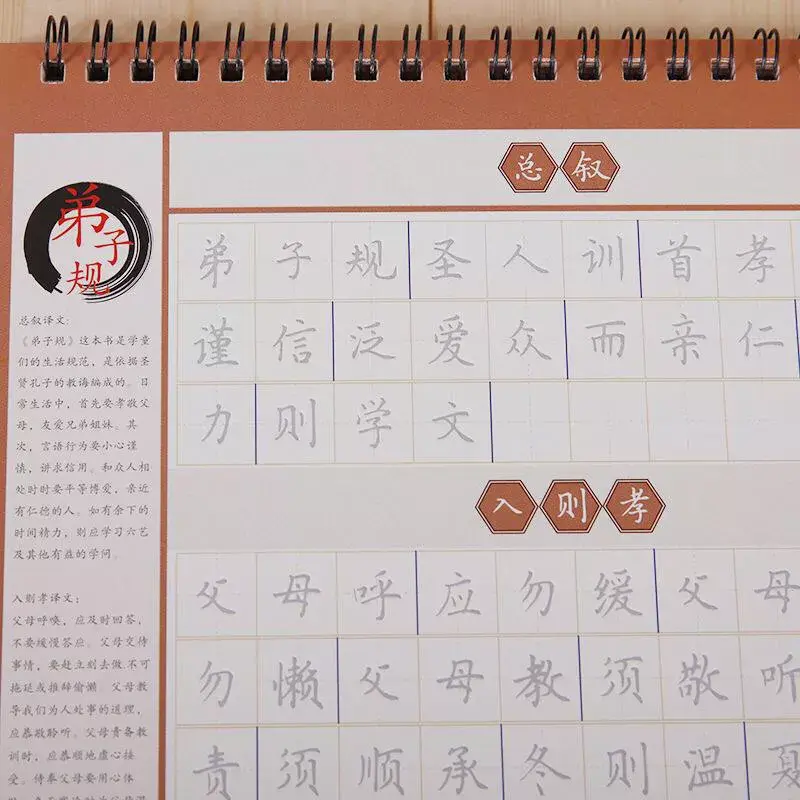 弟子规
总叙译文:
《弟子规》这本书是学童
们的生活规范,是依据圣
贤孔子的教诲编成的。日
常生活中,首先要孝敬父
母,友爱兄弟姐妹。其
次,言语行为要小心谨
慎,讲求信用。和众人相
处时时要平等博爱,亲近
有仁德的人。如有余下的
时间精力,则应学习六艺
及其他有益的学问。
入则孝译文:
父母呼唤,应及时回答,
不要缓慢答应。父母交待
事情,要赶立刻去做.不可
拖延或推辞偷懒。父母教
等我们为人处事的道理,
应恭敬聆听。父母责备教
训时,应恭顺地虚心接
受。侍奉父母要用心体
总叙
弟子规圣人训首孝
谨信泛爱众而亲仁
力则学文
入则孝
父母呼应勿缓父母
勿懒父母教须敬听
责须顺承冬则温夏